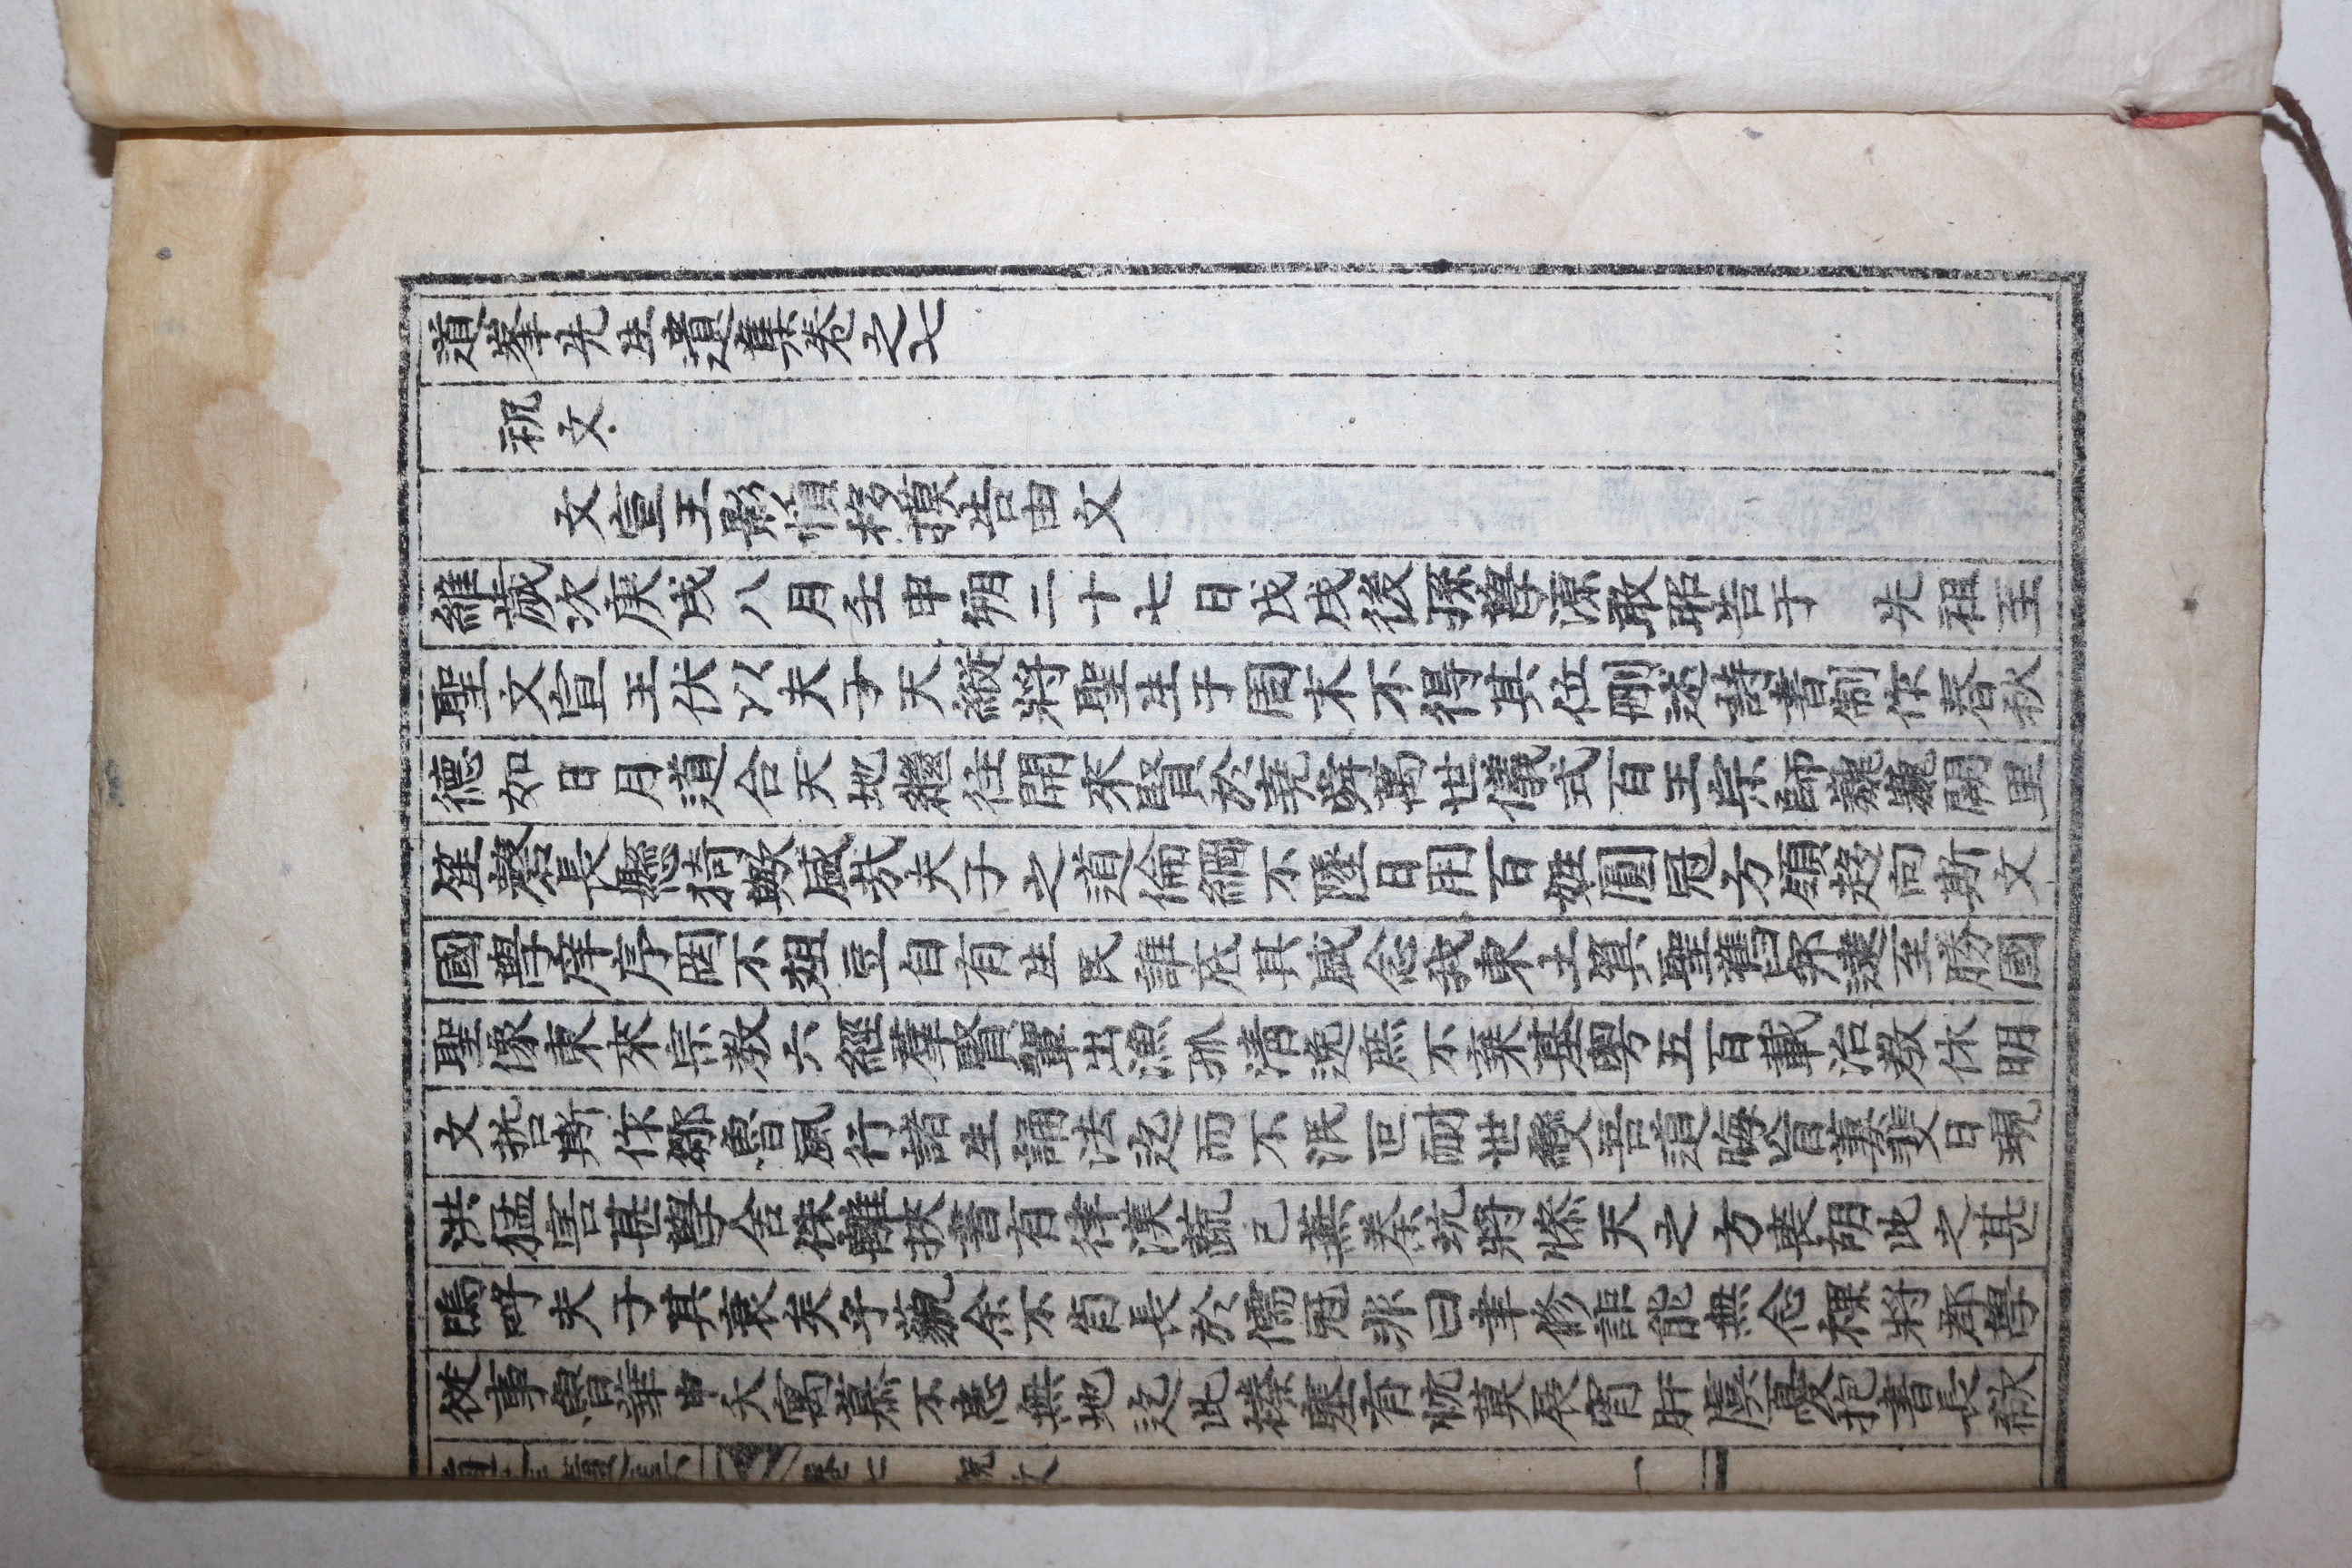 道峯先生遺集卷之七
祝文
文宣王影幀移摸告由文
維歲次庚戌八月壬申朔二十七日戊戌後孫學源敢昭告于 先祖至
聖文宣王伏以夫子天縱將聖生于周末不得其位刪述詩書制作春秋
德如日月道合天地繼往開來賢於堯舜萬世儀式百王宗師巍巍闕里
笙磬長懸猗歟盛哉夫子之道倫綱不墜日用百姓圓冠方領趍向斯文
國學庠序罔不俎豆自有生民誰底其盛念我東土箕聖舊邦逮至勝國
聖像東來宗教六經羣賢輩出漁孤清逸庶不棄基粤五百載治教休明
文哲斯作鄒魯風行諸生誦法迄而不泯叵耐世變吾道晦盲萋斐日現
洪猛害甚學舍侏離挾書有律漢蔬已蕪秦坑將慘天之方喪胡此之甚
嗚呼夫子其衰矣乎藐余不肖長於儒冠非曰聿修詎能無念裸將郡學
從事魯華申夭寓慕不患無地迄此榛塞有恍莫展宵旰虞憂抱書長欷
卷七 祝文 一